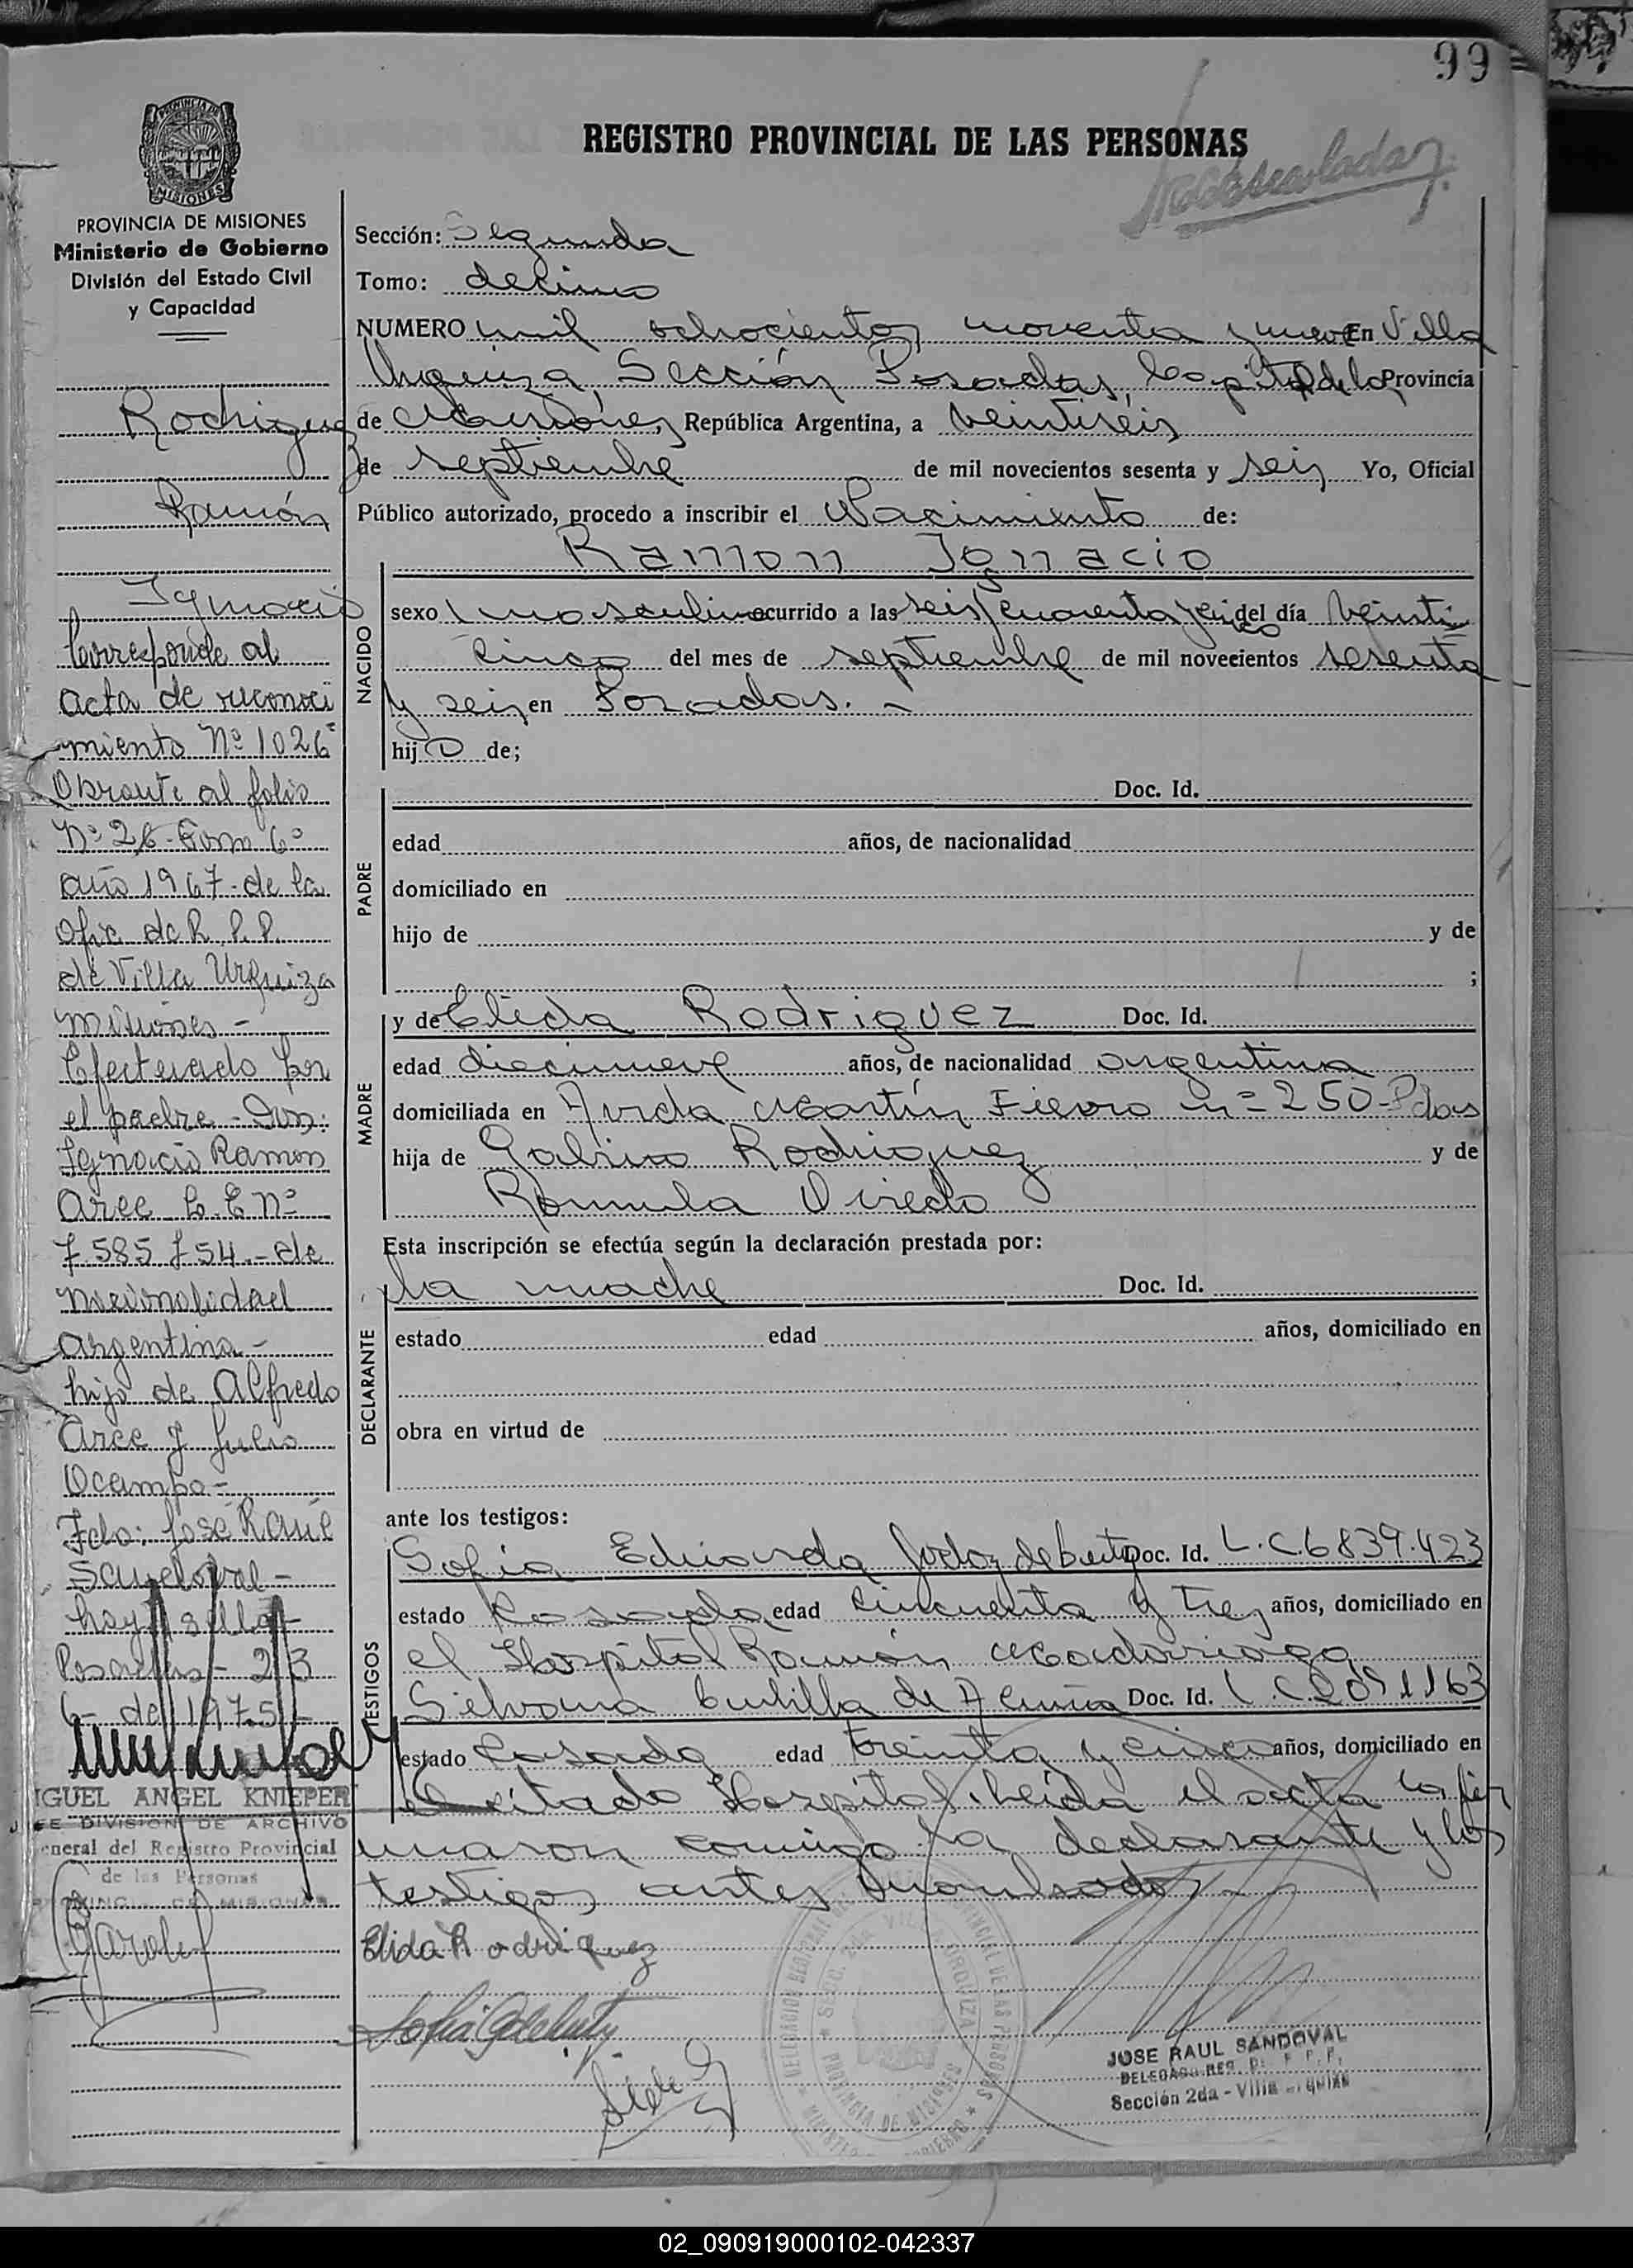 99
REGISTRO PROVINCIAL DE LAS PERSONAS
PROVINCIA DE MISIONES
Ministerio de Gobierno
División del Estado Civil
y Capacidad
Rodriguez
Ramón
Ignacio
Corresponde al
acta de reconoci
miento Nº 1026
Obrante al folio
Nº 26 - Tomo 6º
año 1967 - de la
Ofic. de R. P. P.
de Villa Urquiza
Misiones -
Efectuado por
el padre - Don:
Ignacio Ramon
Arce L. E Nº
7.585.754.- de
nacionalidad
argentina -
hijo de Alfredo
Arce y Julia
Ocampo -
Fdo: José Raúl
Sandoval -
hay sello -
Posadas - 23
6 - de 1975 -
MIGUEL ANGEL KNIEPER
JEFE DIVISION DE ARCHIVO
General del Registro Provincial
de las Personas
PROVINCIA DE MISIONES
Sección: Segunda
Tomo: décimo
NUMERO mil ochocientos noventa y nueve En Villa
Urquiza, Sección Posadas, Capital de la Provincia
de Misiones, República Argentina, a veintiseis
de septiembre de mil novecientos sesenta y seis Yo, Oficial
Público autorizado, procedo a inscribir el Nacimiento de:
Ramon Ignacio
NACIDO
sexo masculino ocurrido a las seis cuarenta y cinco del día veinti
cinco del mes de septiembre de mil novecientos sesenta
y seis en Posadas. -
hijo de;
PADRE
Doc. Id.
edad años, de nacionalidad
domiciliado en
hijo de y de
;
MADRE
y de Elida Rodriguez Doc. Id.
edad diecinueve años, de nacionalidad argentina
domiciliada en Avda Martín Fierro nº 250 - Pdas
hija de Gabino Rodriguez y de
Romula Oviedo
Esta inscripción se efectúa según la declaración prestada por:
DECLARANTE
la madre Doc. Id.
estado edad años, domiciliado en
obra en virtud de
ante los testigos:
TESTIGOS
Sofia Eduarda de Doc. Id. L.C 6839.423
estado Casada edad cincuenta y tres años, domiciliado en
el Hospital Ramón Madariaga
Silvana de Acuña Doc. Id. L.C 2091163
estado Casada edad treinta y cinco años, domiciliado en
el citado Hospital. Leída el acta la fir
maron conmigo la declarante y los
testigos antes
Elida Rodriguez
DELEGACION REGISTRO PROVINCIAL DE LAS PERSONAS
SECC. 2da VILLA URQUIZA
PROVINCIA DE MISIONES
MINISTERIO DE GOBIERNO
JOSE RAUL SANDOVAL
DELEGADO REG. D. R. P. P.
Sección 2da - Villa Urquiza
02_090919000102-042337